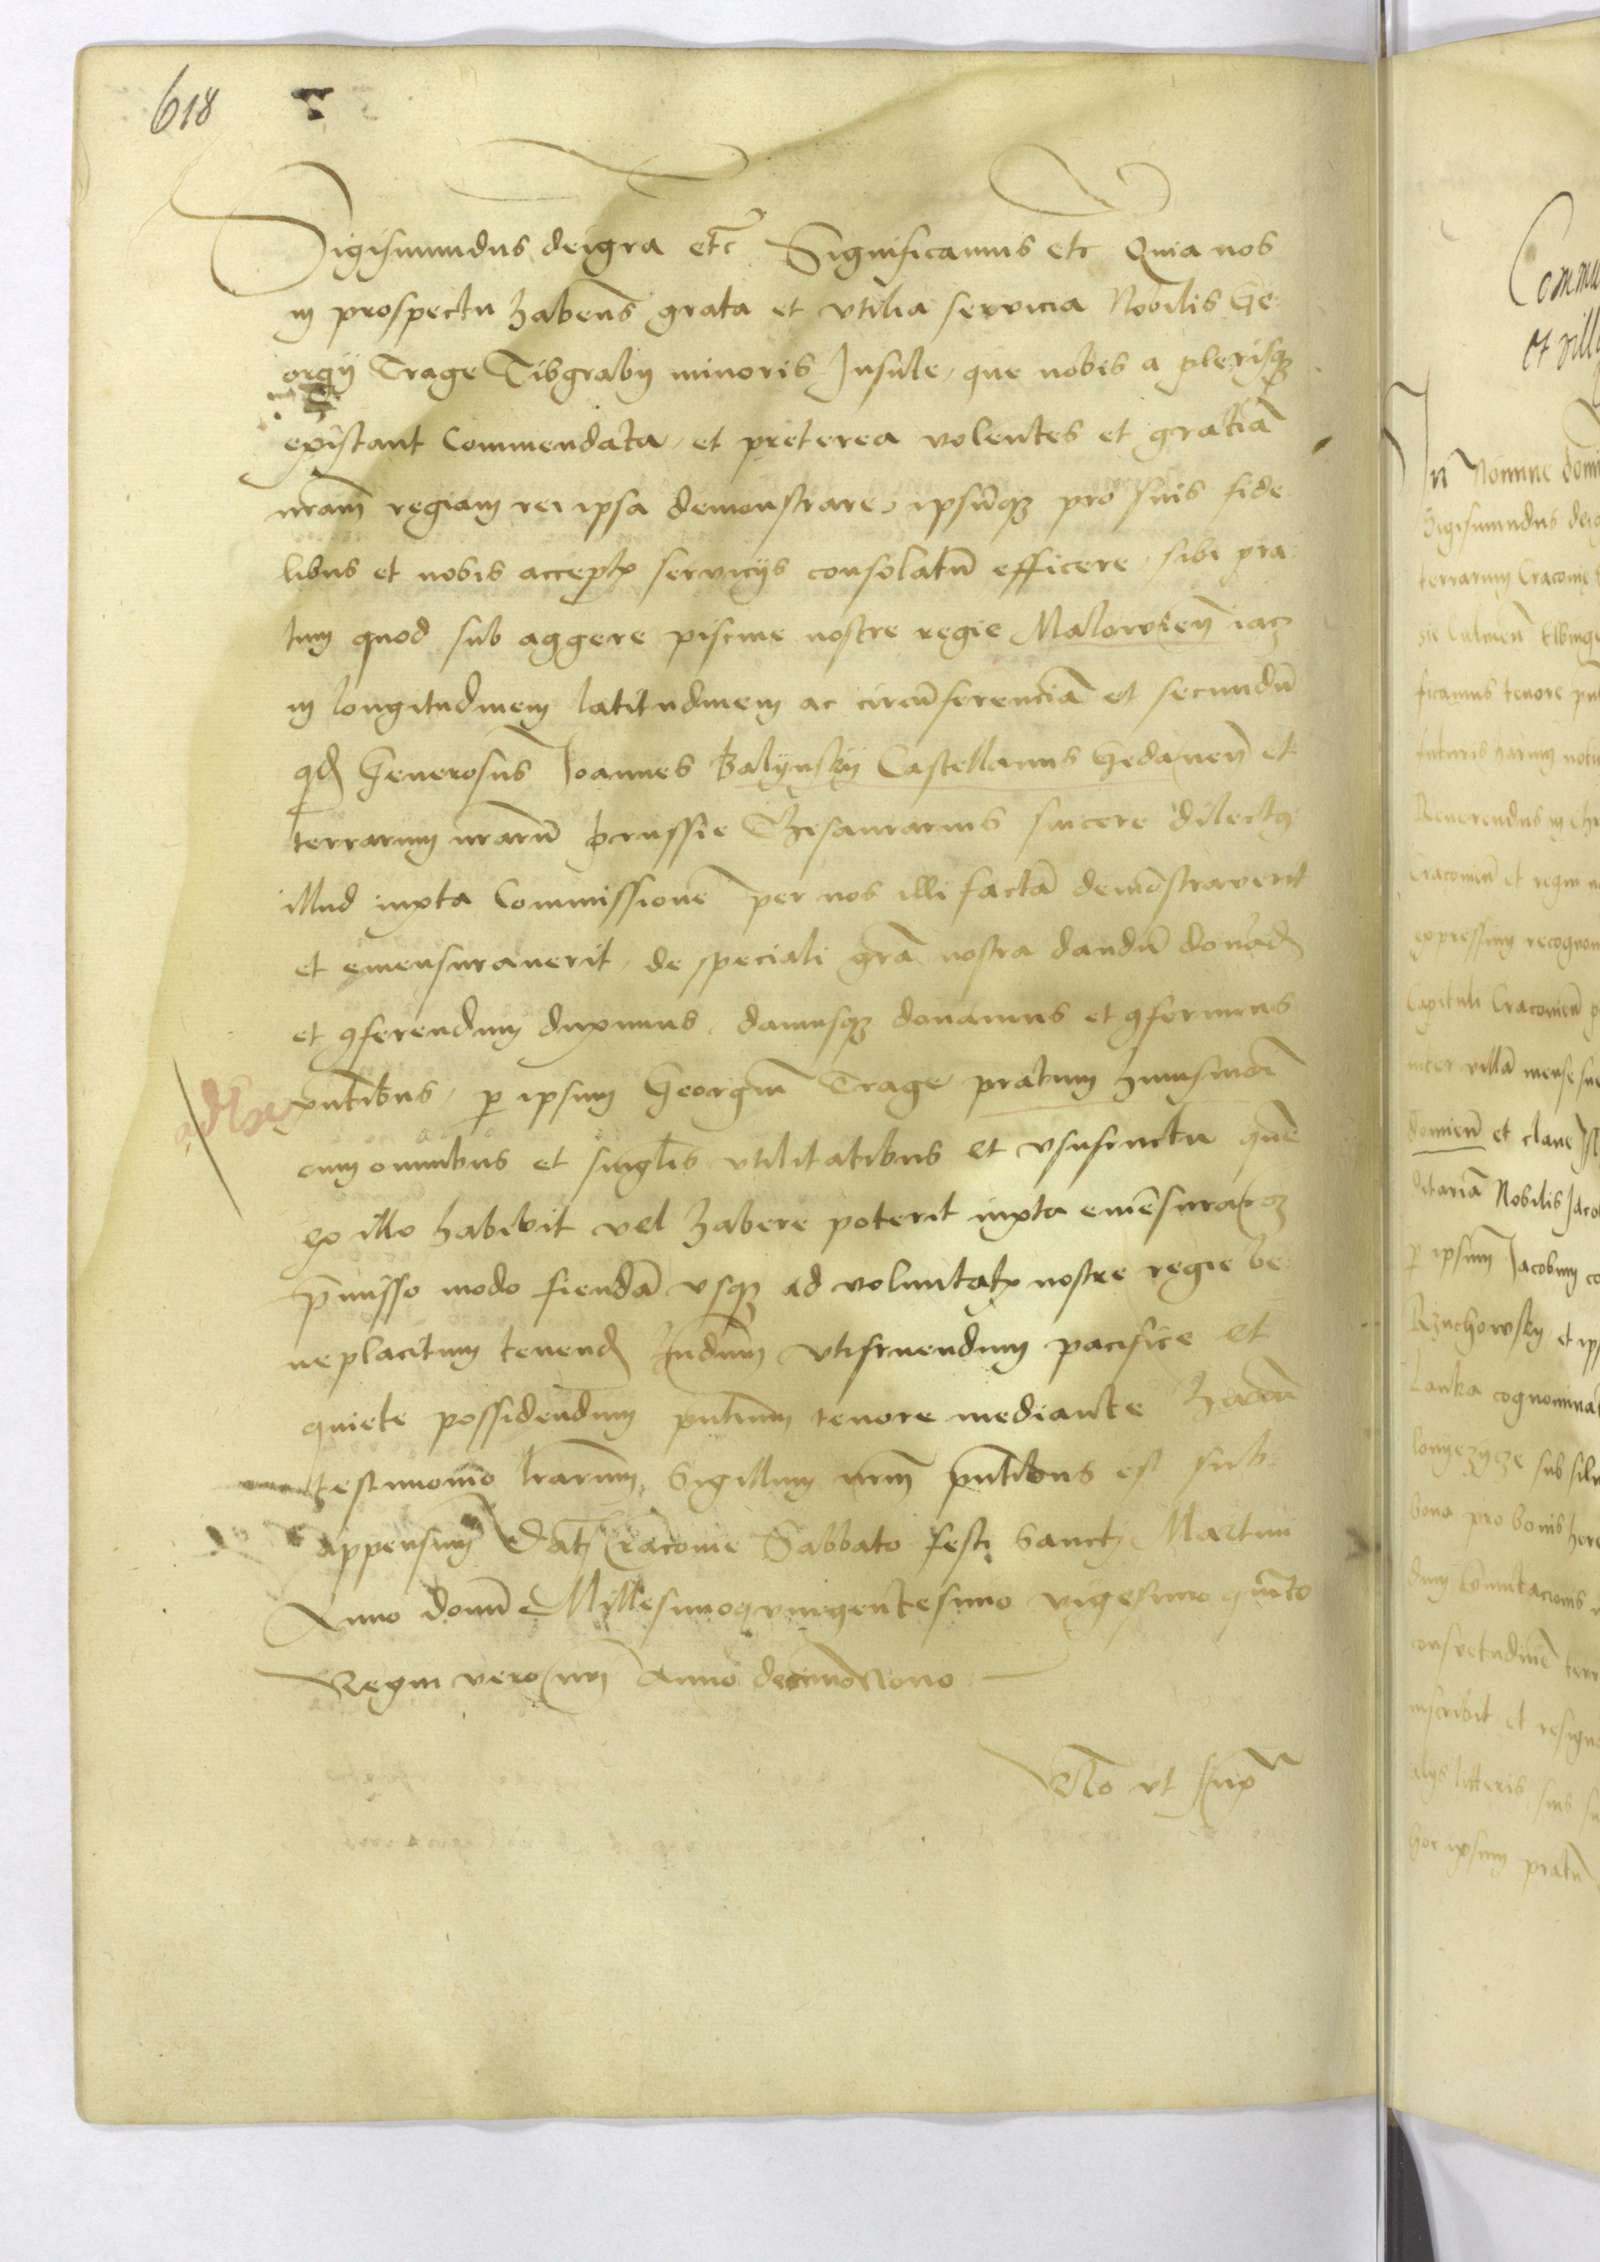 618
Sigismundus deigra etc̃ Significamus etc Quia nos
in prospectu habeñs grata et vtilia servicia Nobilis Ge
orgij Trage Tibgrabij minoris Insule, que nobis a plerisq
existant Commendata, et preterea volentes et gratiã
nrãm regiam rei ipsa demonstrare, ipsũq pro suis fide
libus et nobis accept servicijs consolatũ efficere, sibi pra
tum quod sub aggere piscine nostre regie Malowien̄ iac
in longitudinem latitudinem ac circũferenciã et secundũ
qd Generosus Joannes Balijnskij Castellanus Gedanen̄ et
terrarum nrarũ prussie Thesaurarius sincere dilectq
illud iuxta Commissionẽ per nos illi factã demõstraverit
et emensuraverit, de speciali grã nostra dandũ donãd
et gferendum duximus, damusq donamus et gferimus
pñtibus, p ipsum Georgiũ Trage pratum huiusmõi
cum omnibus et singlis vtilitatibus et vsufructu quẽ
ex illo habebit vel habere poterit iuxta emẽsuracõe
p̃misso modo fiendã vsq ad voluntat nostre regie be
neplacitum tenend hndum vtifruendum pacifice et
quiete possidendum pñtium tenore mediante Harũ
testimonio lrarum, Sigillum nrm pñtibus est sub
appensum Dat Cracovie Sabbato festi Sancti Martini
Anno domi Millesimoquingentesimo vigesimo quĩto
Regni vero nri Anno decimoNono
Rõ vt supra
Commu
et vill
In Nomine domi
Sigismundus dei
terrarum Cracovie
sie Culmen̄ Elbinge
ficamus tenore pñ
futuris harum
Reverendus in
Cracovien̄ et regni
expressum recognov
Capituli Cracovien̄
inter villã mense
et clave
ditariã Nobilis Jaco
p ipsum Jacobum co
et ip
Lanka cognomina
sub silv
bona pro bonis here
dum
consuetudinẽ terr
inscribit et resign
alijs litteris suis su
hoc ipsum pratũ